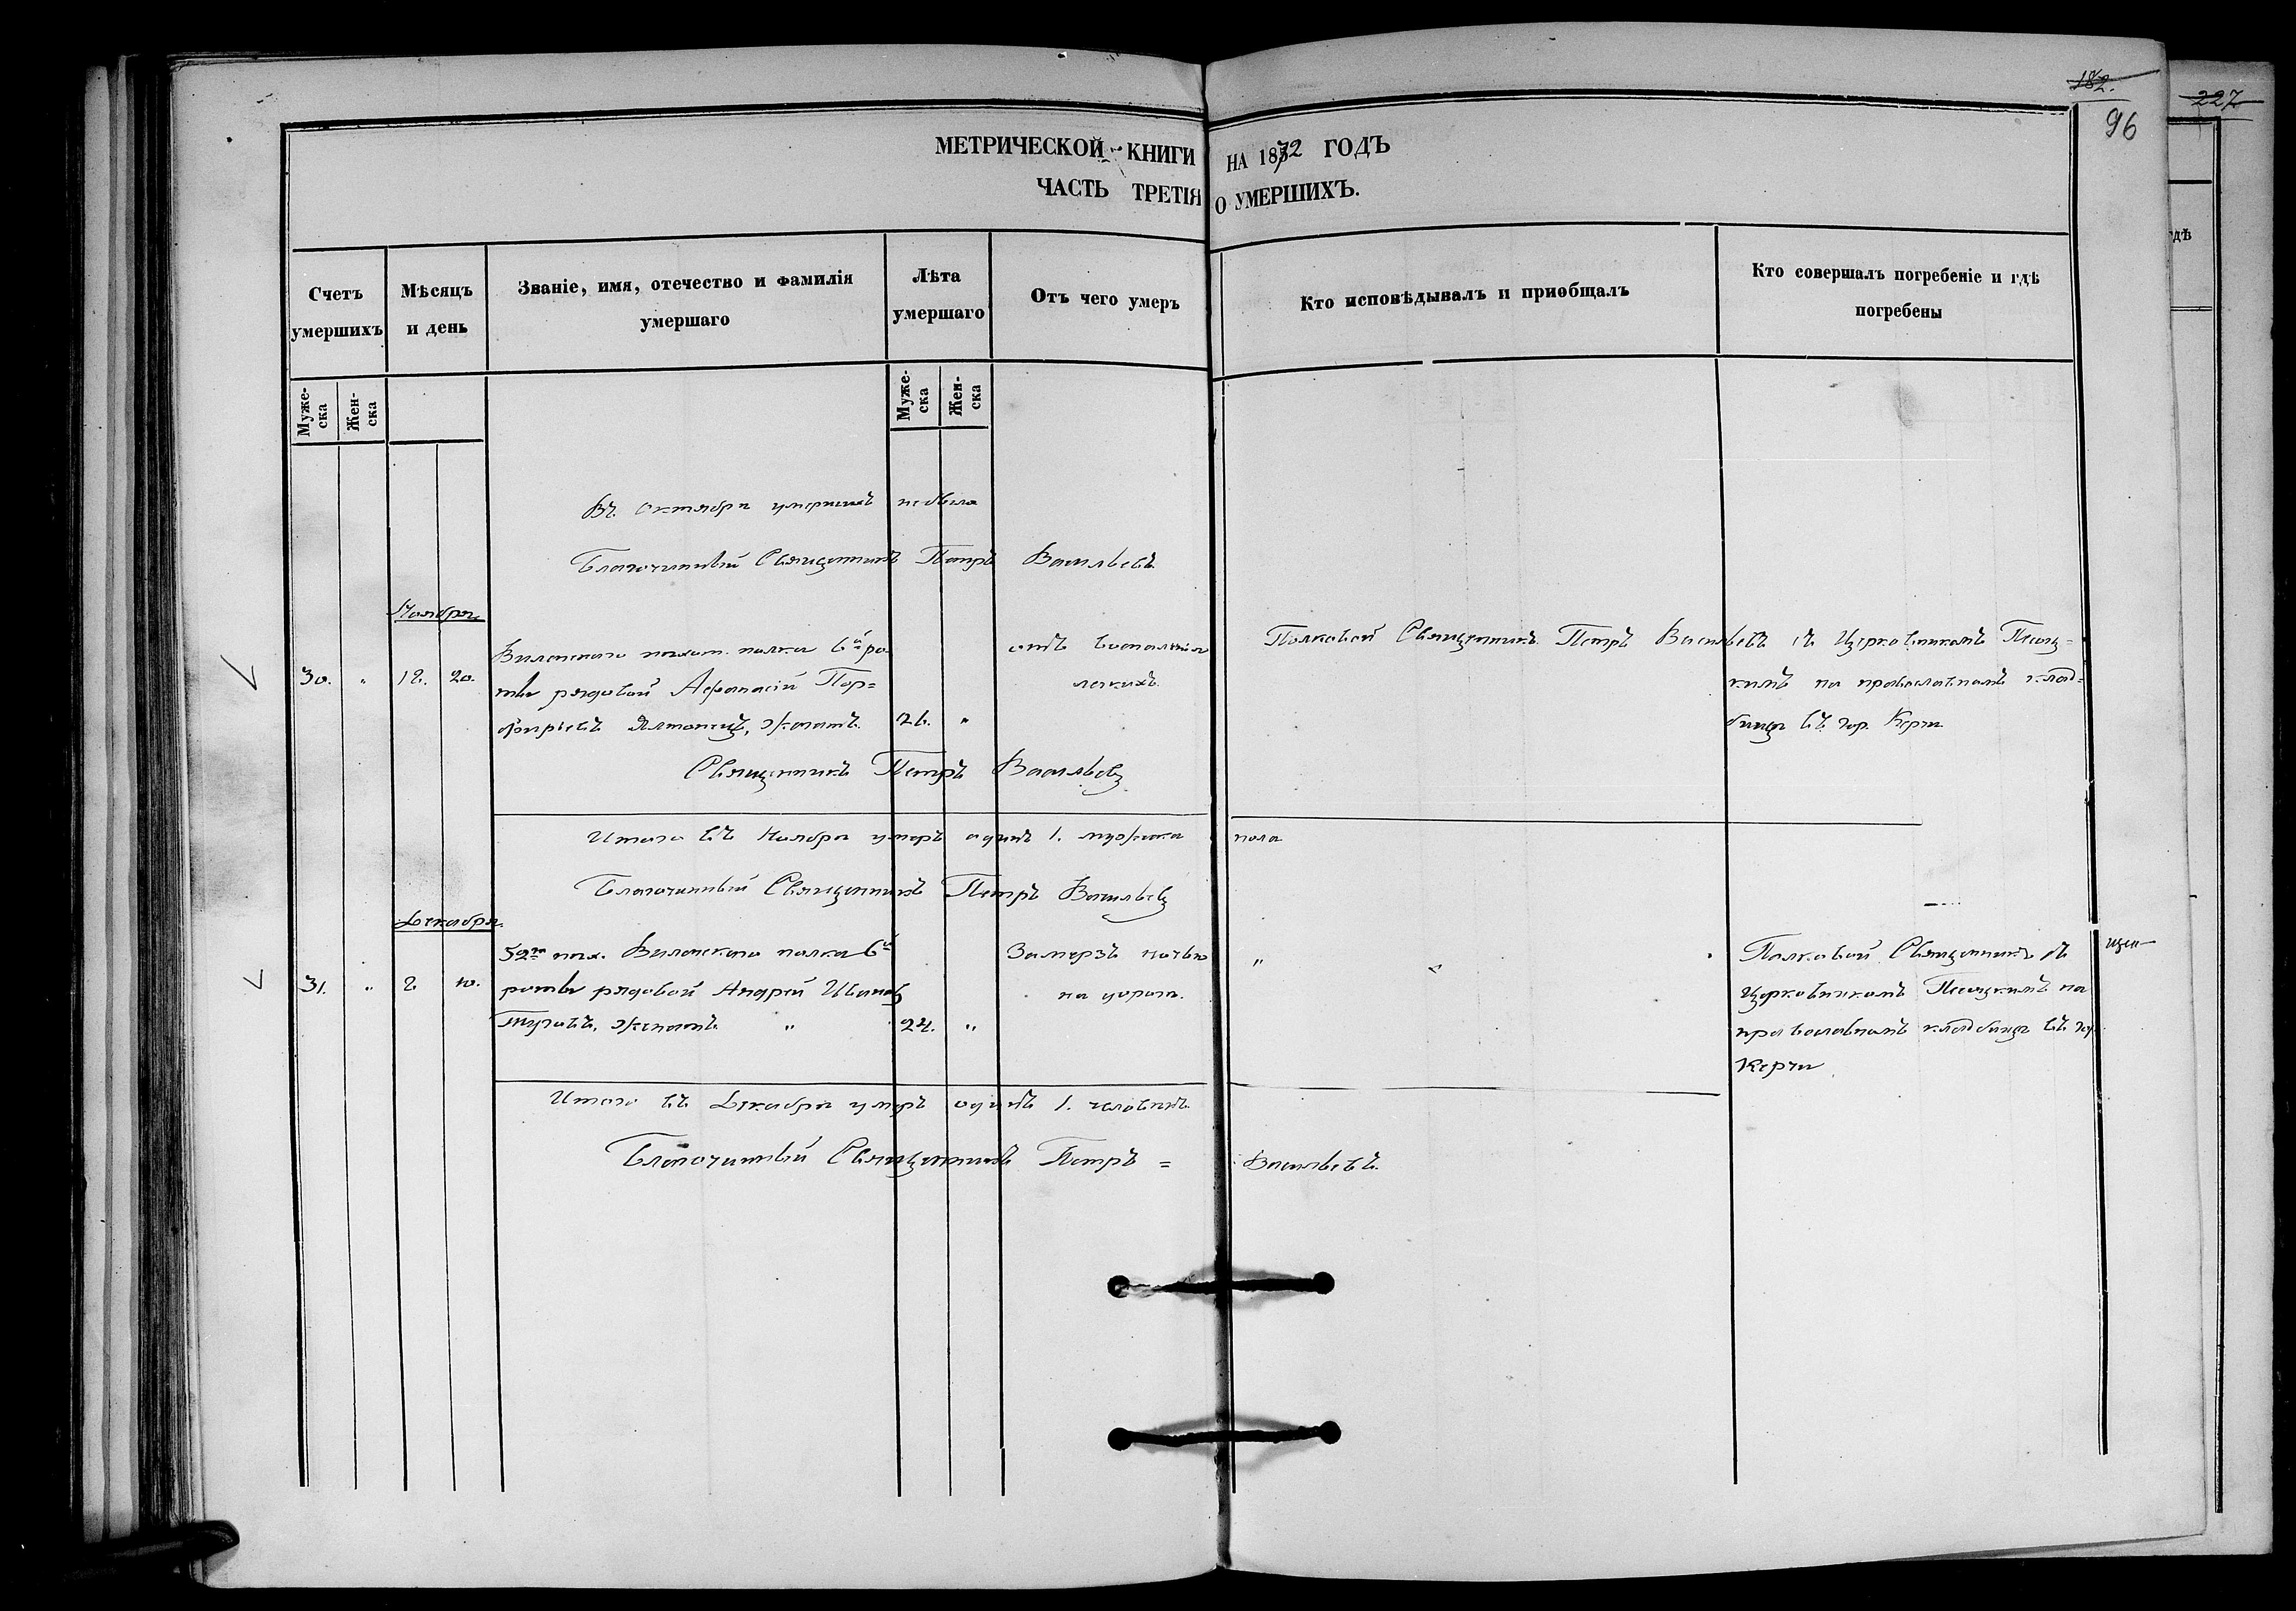 182.
227
96
МЕТРИЧЕСКОЙ КНИГИ НА 1872 ГОДЪ
ЧАСТЬ ТРЕТІЯ О УМЕРШИХЪ.
Счетъ умершихъ
Мѣсяцъ и день
Званіе, имя, отечество и фамилія умершаго
Лѣта умершаго
Отъ чего умеръ
Кто исповѣдывалъ и пріобщалъ
Кто совершалъ погребеніе и гдѣ погребены
гдѣ
Муже-ска
Жен-ска
Муже-ска
Жен-ска
Въ Октябрѣ умершихъ небыло
Благочинный Священникъ Петръ Васильевъ
Ноябрь
Виленскаго пѣхот. полка 6й ро-
отъ воспаленія
Полковой Священникъ Петръ Васильевъ съ Церковникомъ
30. " 18. 20.
ты рядовой Афанасій Пор=
легкихъ.
на православномъ клад=
фирьевъ женатъ. 26. "
бищѣ въ гор. Керчи
Священникъ Петръ Васильевъ
Итого въ Ноябрѣ умеръ одинъ 1. мужеска пола
Благочинный Священникъ Петръ Васильевъ
Декабрь
52го пѣх. Виленскаго полка 6й
Замерзъ ночью
"
Полковой Священникъ съ
31. " 8. 10.
роты рядовой Андрей Ивановъ
на дорогѣ.
Церковникомъ на
женатъ " 24. "
православномъ кладбищѣ въ гор.
Керчи
Итого въ Декабрѣ умеръ одинъ 1. человѣкъ.
Благочинный Священникъ Петръ = Васильевъ.